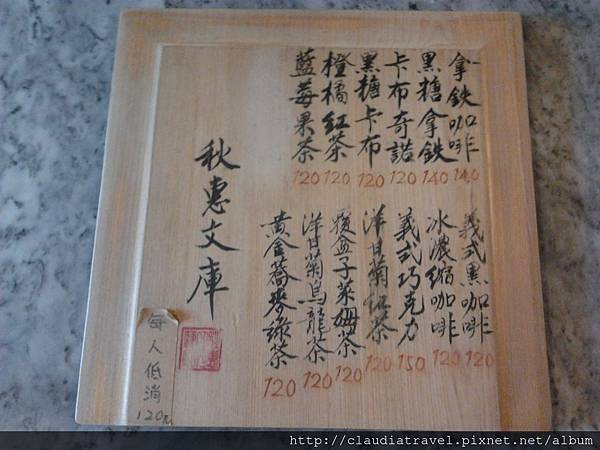 拿鐵咖啡 140
黑糖拿鐵 140
卡布奇諾 120
黑糖卡布 120
橙橘紅茶 120
藍莓果茶 120
義式黑咖啡 120
冰濃縮咖啡 120
義式巧克力 150
洋甘菊紅茶 120
覆盆子萊姆茶 120
洋甘菊烏龍茶 120
黃金蕎麥綠茶 120
秋惠文庫
每人低消
120元
http://claudiatravel.pixnet.net/album